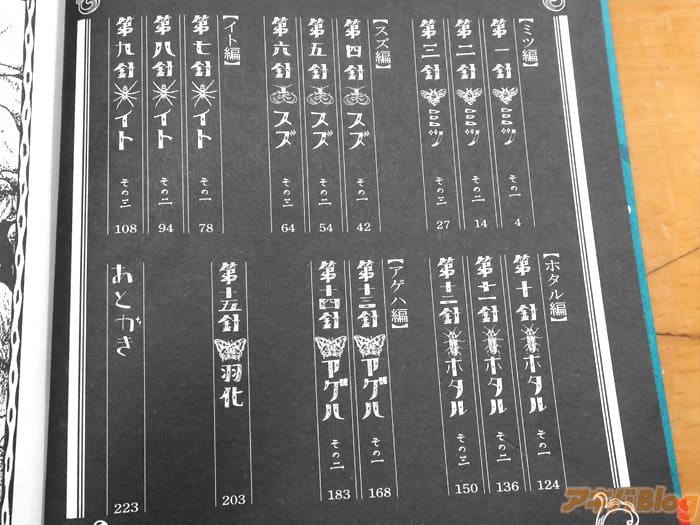 【ミツ編】
第一針 ミツ その一 4
第二針 ミツ その二 14
第三針 ミツ その三 27
【スズ編】
第四針 スズ その一 42
第五針 スズ その二 54
第六針 スズ その三 64
【イト編】
第七針 イト その一 78
第八針 イト その二 94
第九針 イト その三 108
【ホタル編】
第十針 ホタル その一 124
第十一針 ホタル その二 136
第十二針 ホタル その三 150
【アゲハ編】
第十三針 アゲハ その一 168
第十四針 アゲハ その二 183
第十五針 羽化 203
あとがき 223
アキバBlog